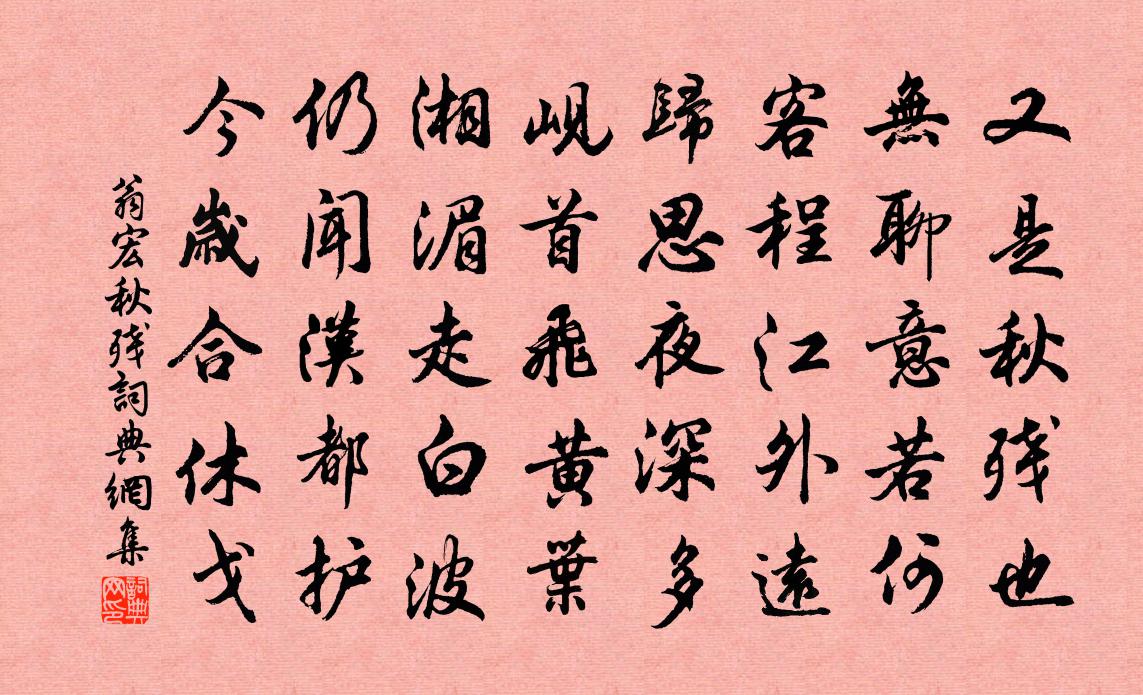 又是秋残也
無聊意若何
客程江外遠
歸思夜深多
峴首飛黄葉
湘湄走白波
仍聞漢都护
今歳合休戈
翁宏秋残詞典網集
詞典网印